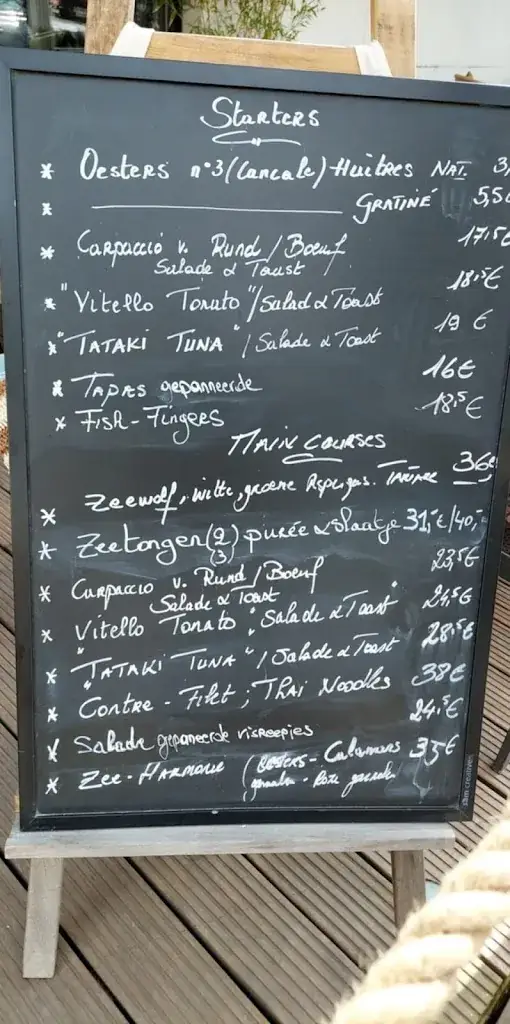 Starters
* Oesters n°3 (Cancale) Huîtres NAT. 3,
* ——— GRATINÉ 5,50
* Carpaccio v. Rund / Boeuf 17,5€
Salade & Toast
* "Vitello Tonato" / Salad & Toast 18,5€
* "TATAKI TUNA" / Salade & Toast 19 €
* TAPAS gepanneerde 16€
* Fish-Fingers 18,5€
MAIN COURSES
* Zeewolf, witte, groene Asperges. 36€
* Zeetongen (2/3) purée & slaatje 31,-€/40,-
* Carpaccio v. Rund / Boeuf 23,5€
Salade & Toast
* Vitello Tonato, Salade & Toast 24,5€
* "TATAKI TUNA" / Salade & Toast 28,5€
* Contre-Filet ; Thai Noodles 38€
* Salade gepaneerde visreepjes 24,5€
* Zee-Harmonie (oesters - Calamars 35€
garnalen - Roze garnalen